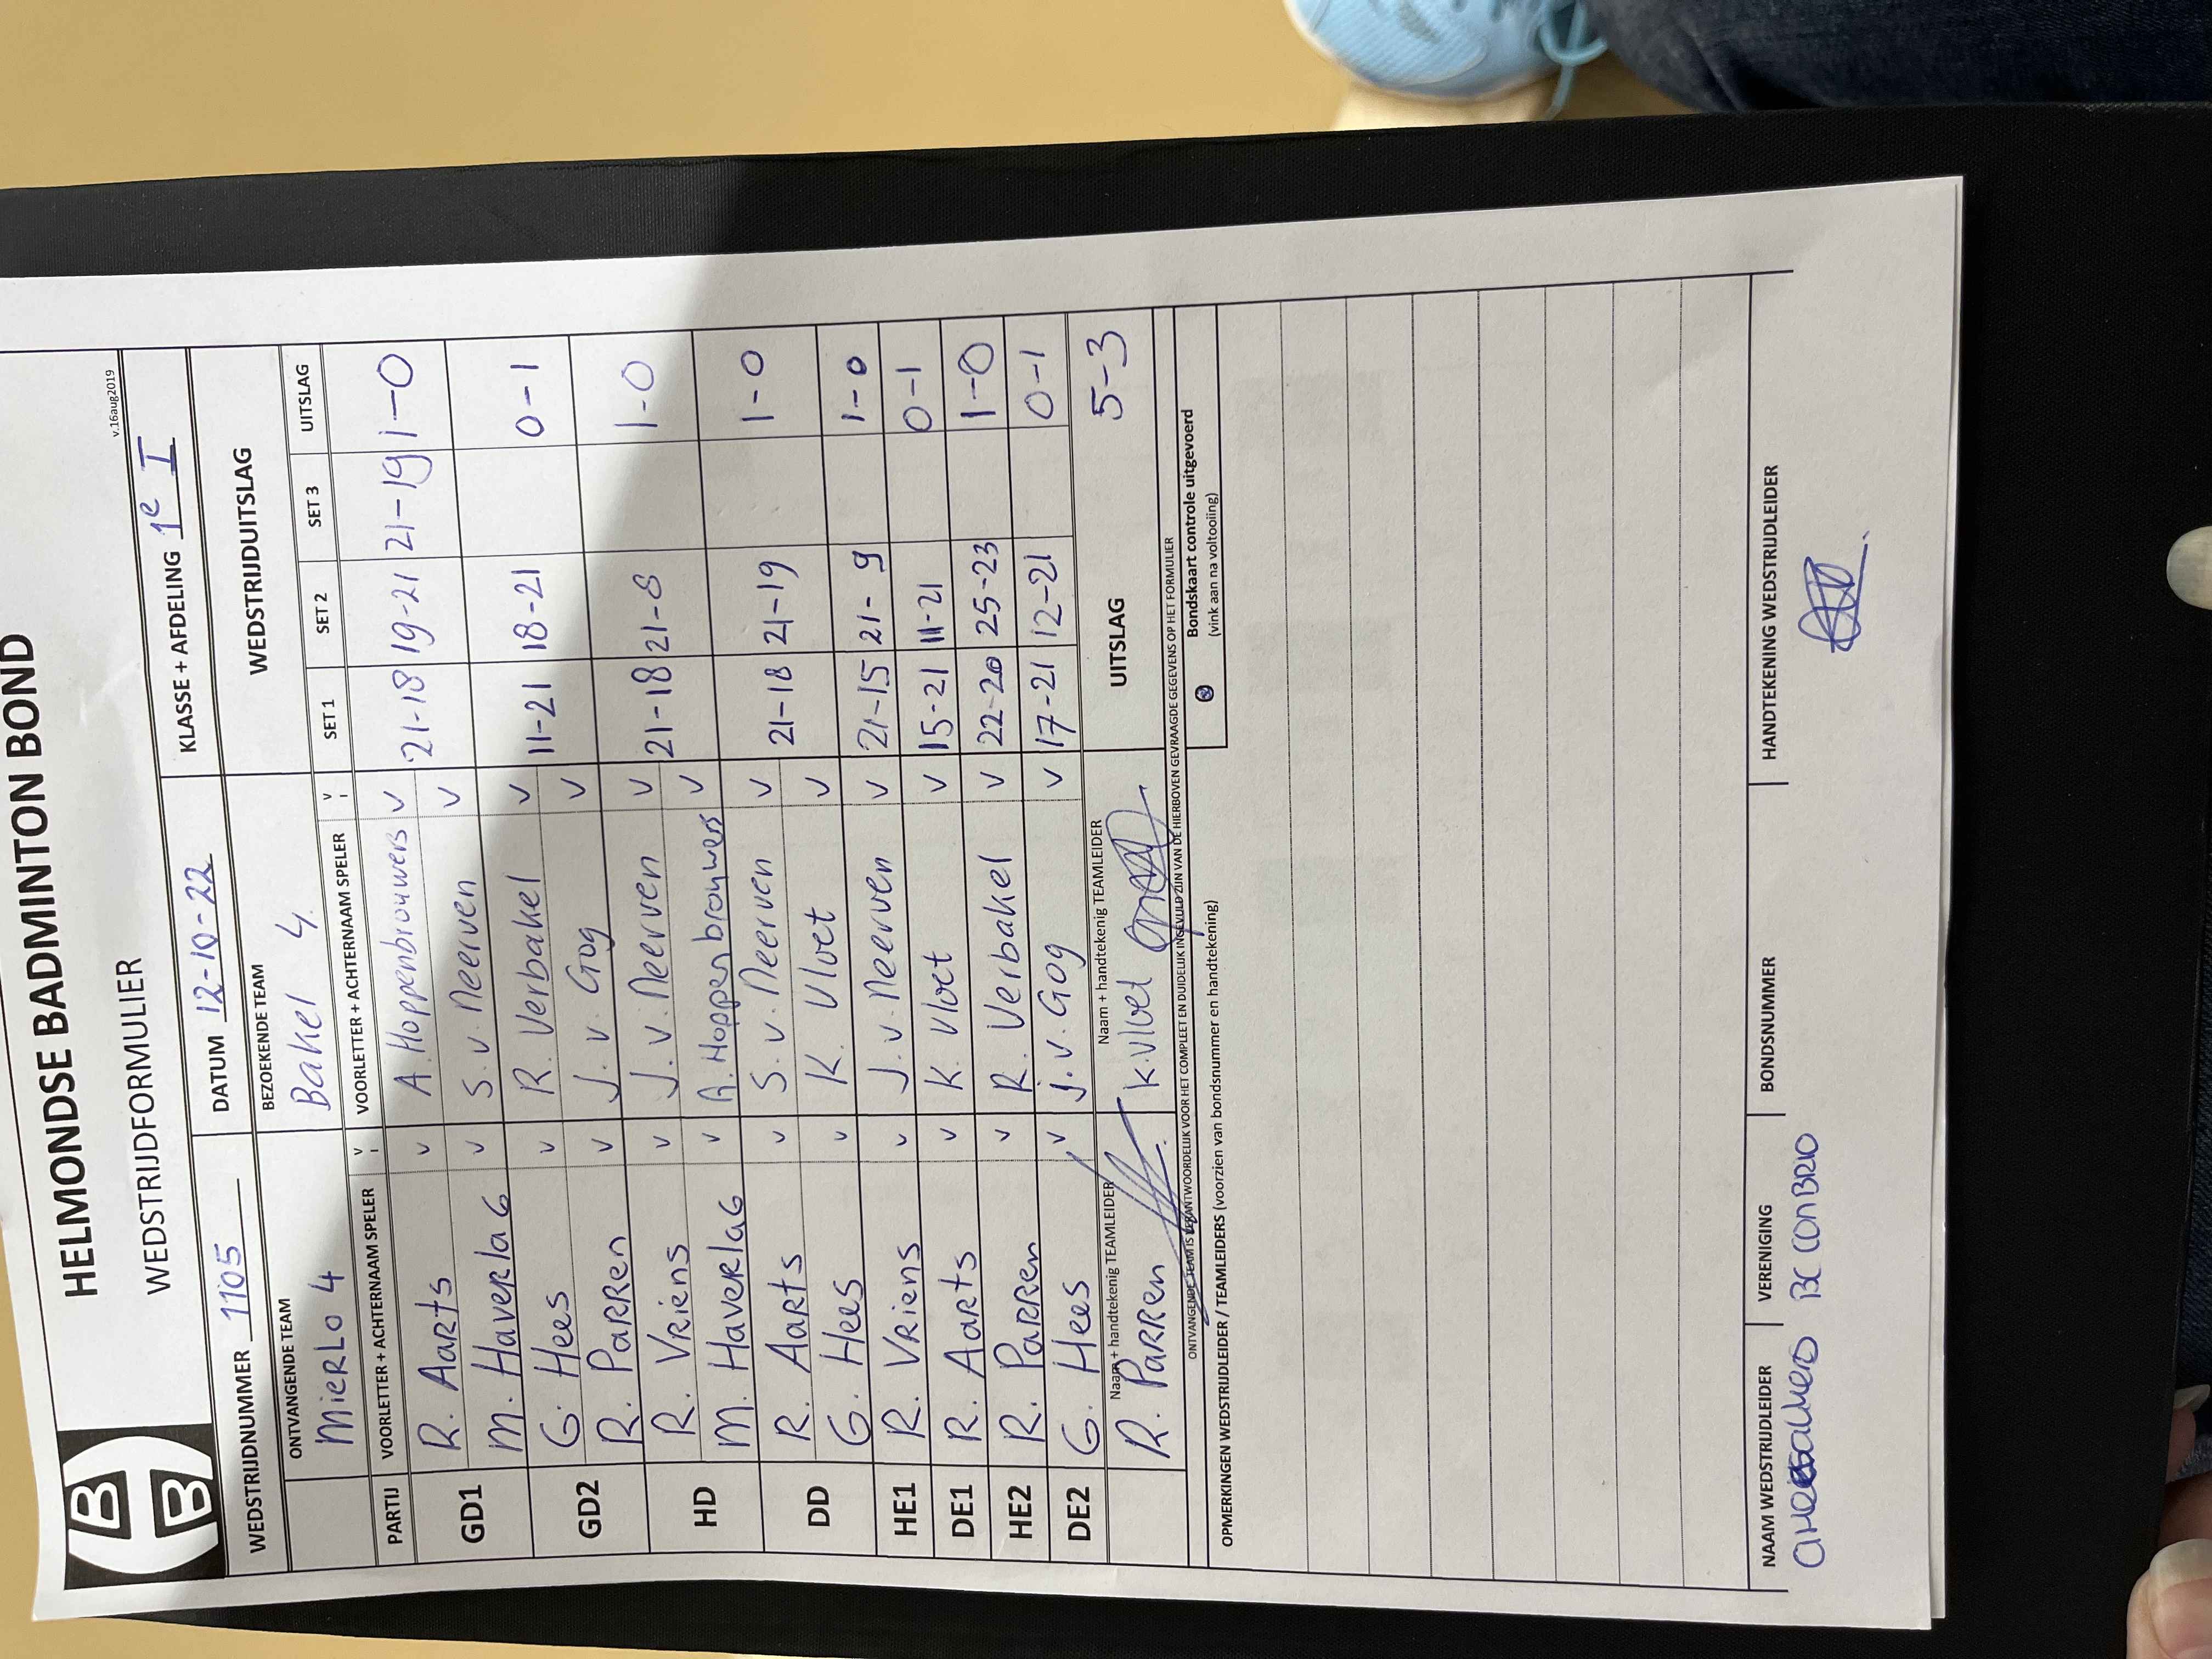 HELMONDSE BADMINTON BOND
WEDSTRIJDFORMULIER
v.16aug2019
WEDSTRIJDNUMMER 1105 DATUM 12-10-22 KLASSE + AFDELING 1e I
ONTVANGENDE TEAM BEZOEKENDE TEAM WEDSTRIJDUITSLAG
MIERLO 4 Bakel 4
PARTIJ VOORLETTER + ACHTERNAAM SPELER v VOORLETTER + ACHTERNAAM SPELER v SET 1 SET 2 SET 3 UITSLAG
GD1 R. Aarts v A. Hoppenbrouwers v 21-18 19-21 21-19 1-0
M. Haverlag v S. v. Neerven v
GD2 G. Hees v R. Verbakel v 11-21 18-21 0-1
R. Parren v J. v. Gog v
HD R. Vriens v J. v. Neerven v 21-18 21-8 1-0
M. Haverlag v A. Hoppenbrouwers v
DD R. Aarts v S. v. Neerven v 21-18 21-19 1-0
G. Hees v K. Vloet v
HE1 R. Vriens v J. v. Neerven v 21-15 21-9 1-0
DE1 R. Aarts v K. Vloet v 15-21 11-21 0-1
HE2 R. Parren v R. Verbakel v 22-20 25-23 1-0
DE2 G. Hees v J. v. Gog v 17-21 12-21 0-1
Naam + handtekenig TEAMLEIDER Naam + handtekenig TEAMLEIDER UITSLAG 5-3
R. Parren K. Vloet
ONTVANGENDE TEAM IS VERANTWOORDELIJK VOOR HET COMPLEET EN DUIDELIJK INGEVULD ZIJN VAN DE HIERBOVEN GEVRAAGDE GEGEVENS OP HET FORMULIER
Bondskaart controle uitgevoerd
(vink aan na voltooling)
OPMERKINGEN WEDSTRIJDLEIDER / TEAMLEIDERS (voorzien van bondsnummer en handtekening)
NAAM WEDSTRIJDLEIDER VERENIGING BONDSNUMMER HANDTEKENING WEDSTRIJDLEIDER
BC CONBRIO